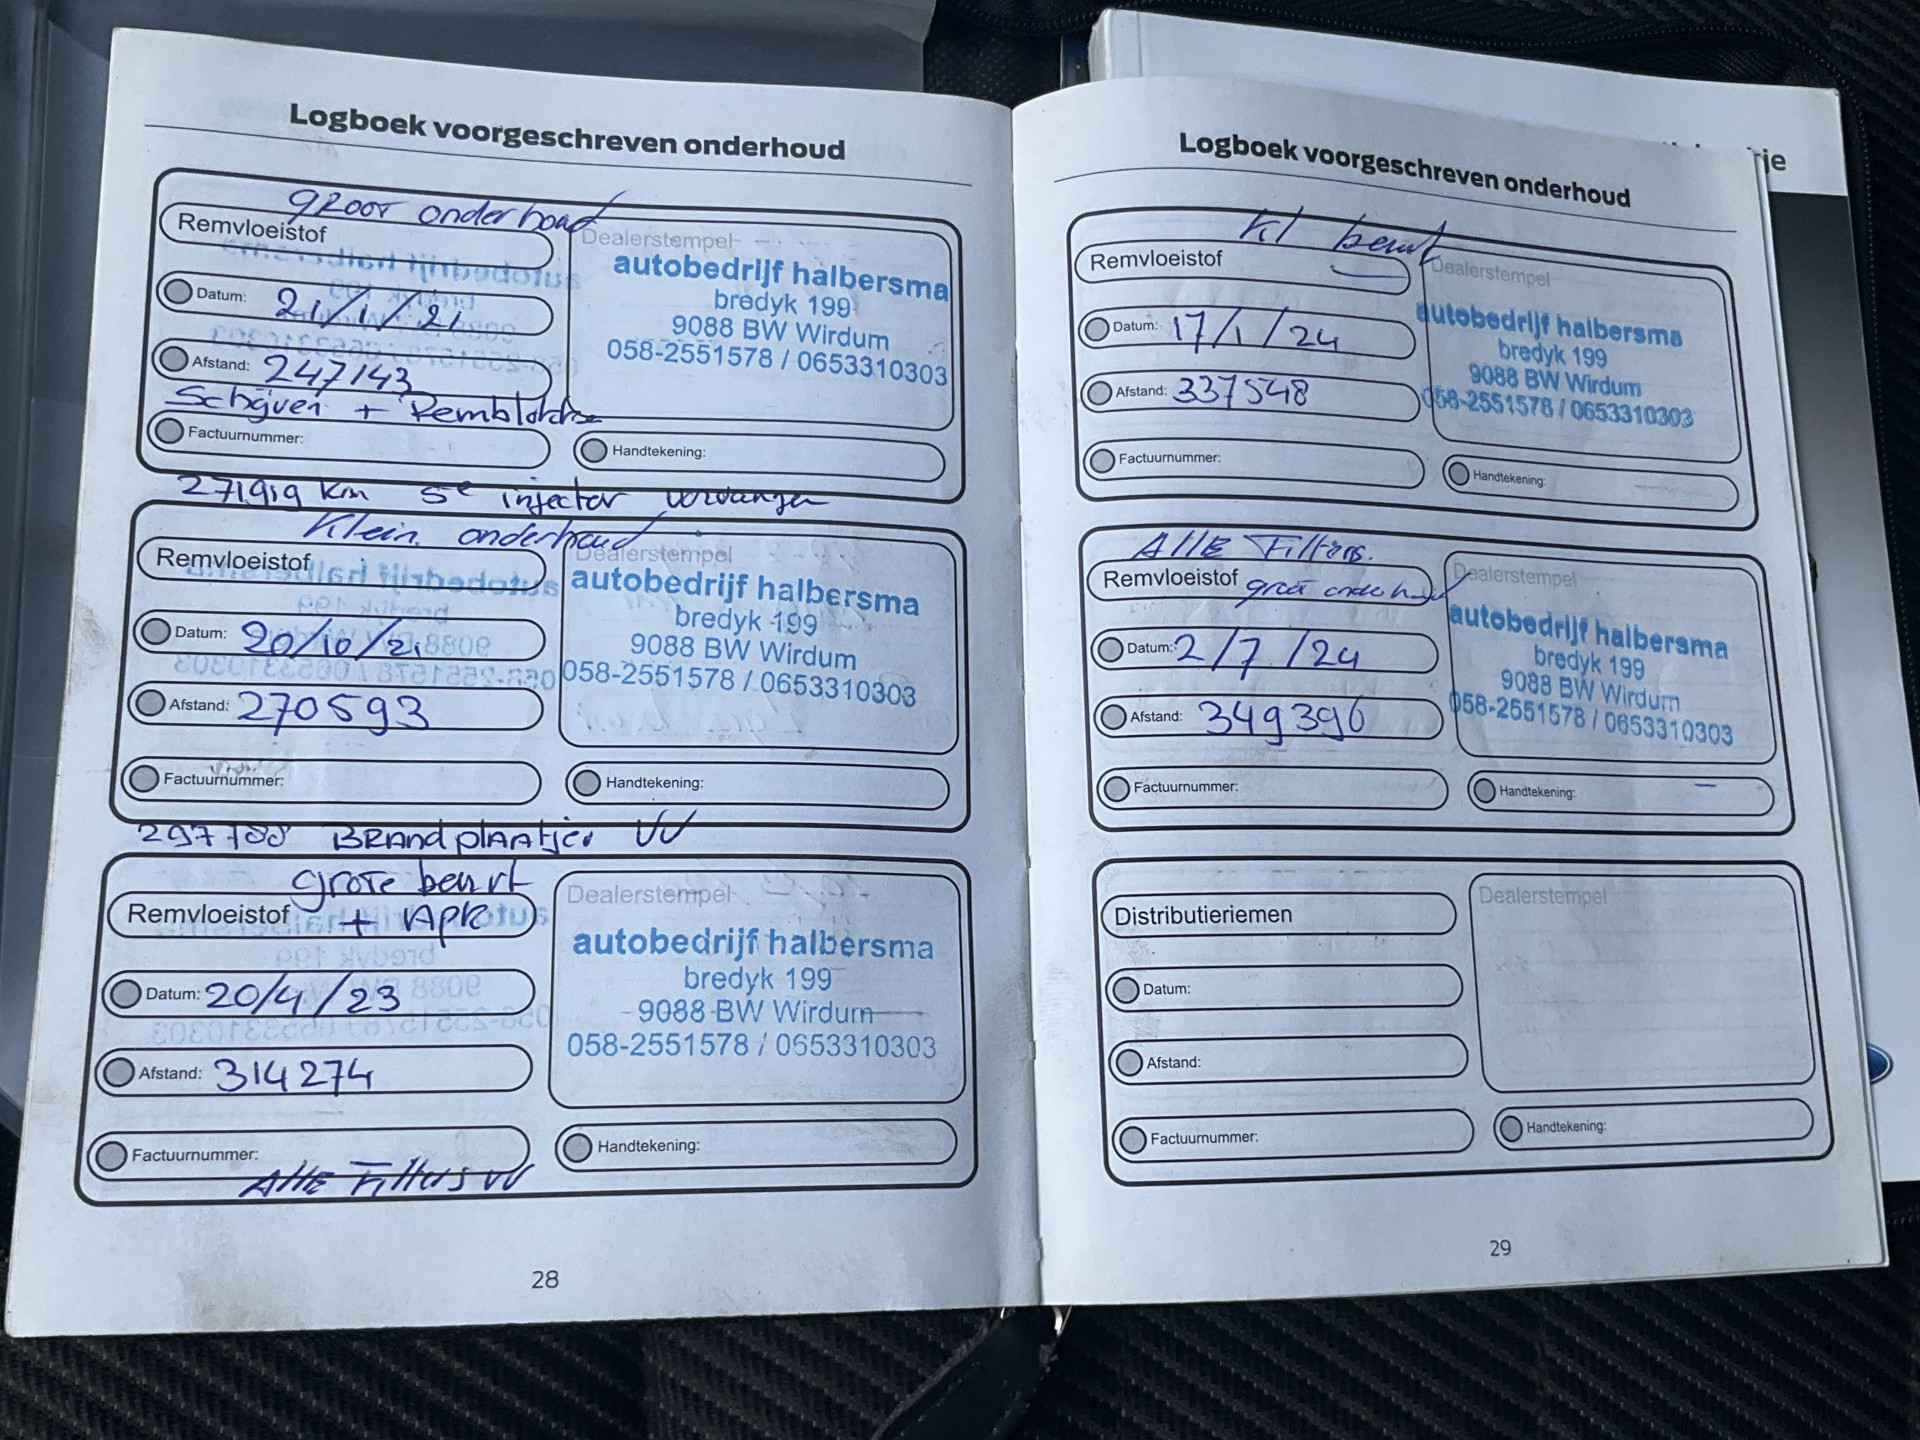 Logboek voorgeschreven onderhoud
groot onderhoud
Remvloeistof
Dealerstempel
Datum: 21/1/21
autobedrijf halbersma
bredyk 199
9088 BW Wirdum
058-2551578 / 0653310303
Afstand: 247143
Schijven + Remblokke
Factuurnummer:
Handtekening:
271919 km 5e injector vervangen
Klein onderhoud
Remvloeistof
Dealerstempel
Datum: 20/10/21
autobedrijf halbersma
bredyk 199
9088 BW Wirdum
058-2551578 / 0653310303
Afstand: 270593
Factuurnummer:
Handtekening:
297788 BRANdplAAtjes VV
grote beurt
Remvloeistof + Apk
Dealerstempel
Datum: 20/4/23
autobedrijf halbersma
bredyk 199
9088 BW Wirdum
058-2551578 / 0653310303
Afstand: 314274
Factuurnummer:
Handtekening:
AllE Filters VV
28
Logboek voorgeschreven onderhoud
kl beurt
Remvloeistof
Dealerstempel
Datum: 17/1/24
autobedrijf halbersma
bredyk 199
9088 BW Wirdum
058-2551578 / 0653310303
Afstand: 337548
Factuurnummer:
Handtekening:
AllE Filters.
Remvloeistof groot onderhoud
Dealerstempel
Datum: 2/7/24
autobedrijf halbersma
bredyk 199
9088 BW Wirdum
058-2551578 / 0653310303
Afstand: 349396
Factuurnummer:
Handtekening:
Distributieriemen
Dealerstempel
Datum:
Afstand:
Factuurnummer:
Handtekening:
29